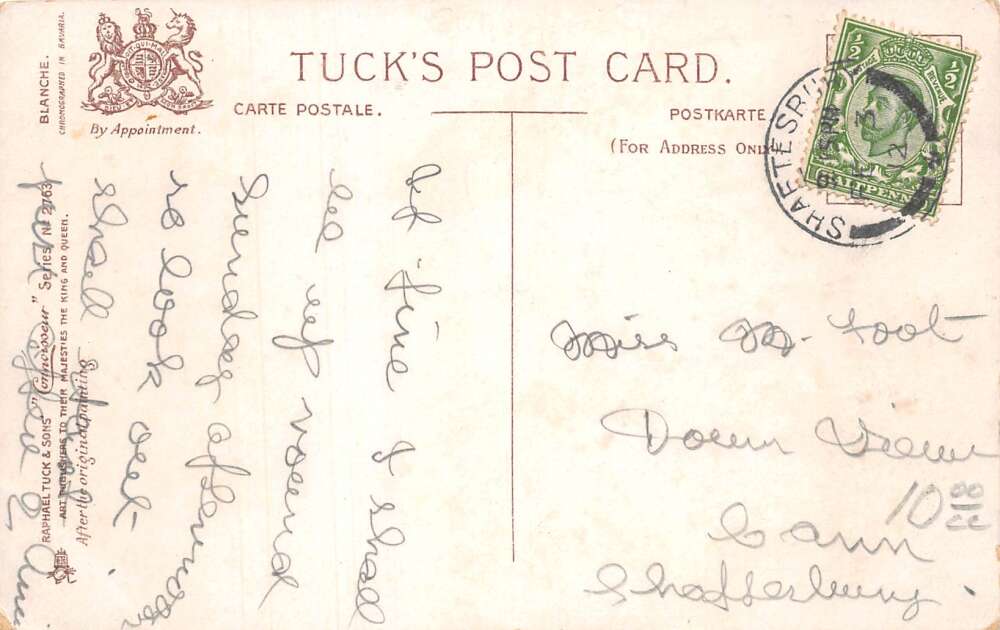 TUCK'S POST CARD.
CARTE POSTALE.
POSTKARTE
(FOR ADDRESS ONLY
By Appointment.
BLANCHE.
CHROMOGRAPHED IN BAVARIA.
RAPHAEL TUCK & SONS' "Connoisseur" Series Nº 2763
ART PUBLISHERS TO THEIR MAJESTIES THE KING AND QUEEN.
After the original painting
SHAFTESBURY
FE 3
12
POSTAGE REVENUE
½ ½
HALFPENNY
If fine I shall
be up round
Sunday afternoon
so look out
shall
2
Miss M. Foot
Down View
Cann
Shaftesbury.
10 00